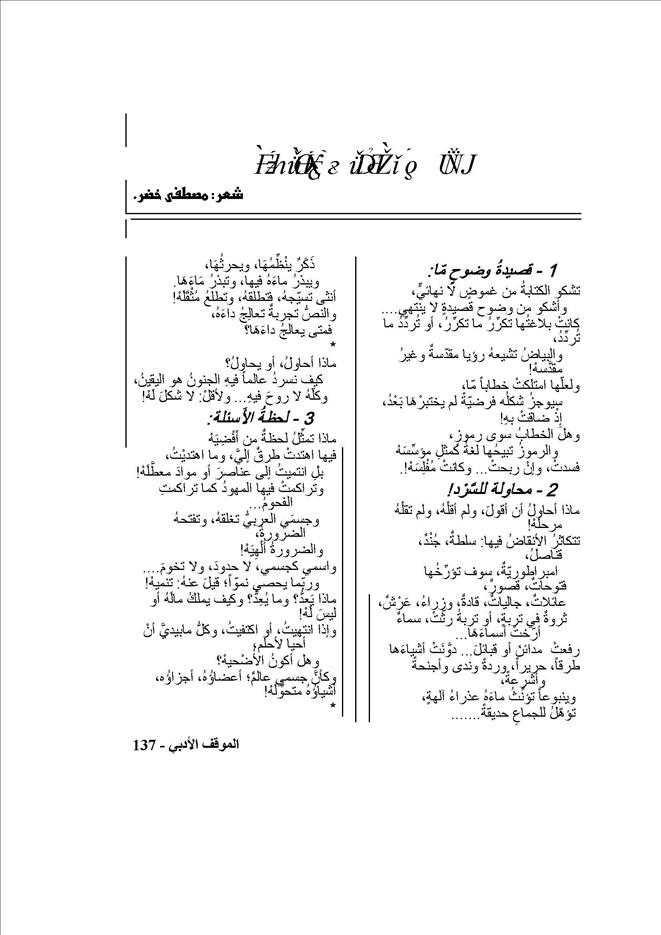 شعر: مصطفى خضر.
1 - قصيدةُ وضوحٍ مّا:
تشكو الكتابةُ من غموضٍ لا نهائيٍّ،
وأشكو من وضوحِ قصيدةٍ لا ينتهي....
كانتْ بلاغتُها تكرِّرُ ما تكرِّرُ، أو تُردِّدُ ما
تُردِّدُ،
والبياضُ تشيعهُ رؤيا مقدّسةٌ وغيرُ
مقدّسهْ!
ولعلّها امتلكتْ خطاباً مّا،
سيوجزُ شكلُه فرضيّةً لم يختبرْها بَعْدُ،
إذْ ضاقتْ بهِ!
وهلَ الخطابُ سوى رموزٍ،
والرموزُ تبيحُها لغةٌ كمثلِ مؤسّسَهْ
فسدتْ، وإنْ ربحتْ... وكانتْ مُفْلِسَهْ!.
2 - محاولة للسَّرْد!
ماذا أحاولُ أن أقولَ، ولم أقلْهُ، ولم تقلْهُ
مرحلهْ!
تتكاثرُ الأنقاضُ فيها: سلطةٌ، جُنْدٌ،
قناصلُ،
امبراطوريّةٌ، سوف تؤرِّخُها
فتوحاتٌ، قصورٌ،
عائلاتٌ، جالياتٌ، قادةٌ، وزراءُ، عَرْشٌ،
ثروةٌ في تربةٍ، أو تربةٌ رثّتْ، سماءٌ
أرّختْ أسماءَهَا...
رفعتْ مدائنَ أو قبائلَ... دوَّنَتْ أشياءَها
طرقاً، حريراً، وردةً وندى وأجنحةً
وأشرعةً،
وينبوعاً تؤنّثُ ماءَهُ عذراءُ آلهةٍ،
تؤهّلُ للجماعِ حديقةً.......
ذَكَرٌ ينْظِّمُهَا، ويحرثُهَا،
ويبذرُ ماءَهُ فيها، وتبذرُ مَاءَهَا.
أنثى تسيّجهُ، فتطلقهُ، وتطلعُ مُثْقَلَهْ!
والنصُّ تجربةٌ تعالجُ داءَهُ،
فمتى يعالجُ داءَهَا؟
*
ماذا أحاولُ، أو يحاولُ؟
كيف نسردُ عالماً فيهِ الجنونُ هو اليقينُ،
وكلّهُ لا روحَ فيهِ... ولأقلْ: لا شكلَ لهْ!
3 - لحظةُ الأسئلة:
ماذا تمثِّلُ لحظةٌ من أقضيَهْ
فيها اهتدتْ طرقٌ إليَّ، وما اهتديْتُ،
بلِ انتميتُ إلى عناصرَ أو موادَ معطَّلَهْ!
وتراكمتْ فيها المهودُ كما تراكمتِ
الفحومُ...
وجسمَي العربيُّ تغلقهُ، وتفتحهُ
الضرورةُ،
والضرورةُ أُلْهِيَهْ!
واسمي كجسمي، لا حدودَ، ولا تخومَ....
وربّما يحصي نموّاً؛ قيلَ عنهُ: تنميهْ!
ماذا يَعِدُّ؟ وما يُعِدُّ؟ وكيف يملكُ مالَهُ أو
ليسَ لهْ!
وإذا انتهيتُ، أو اكتفيتُ، وكلُّ مابيديَّ أنْ
أحيا لأحلمَ؛
وهل أكونُ الأُضْحيهْ؟
وكأنَّ جسمي عالمٌ؛ أعضاؤُهُ، أجزاؤُه،
أشياؤُهُ متحوِّلَهْ!
*
الموقف الأدبي - 137